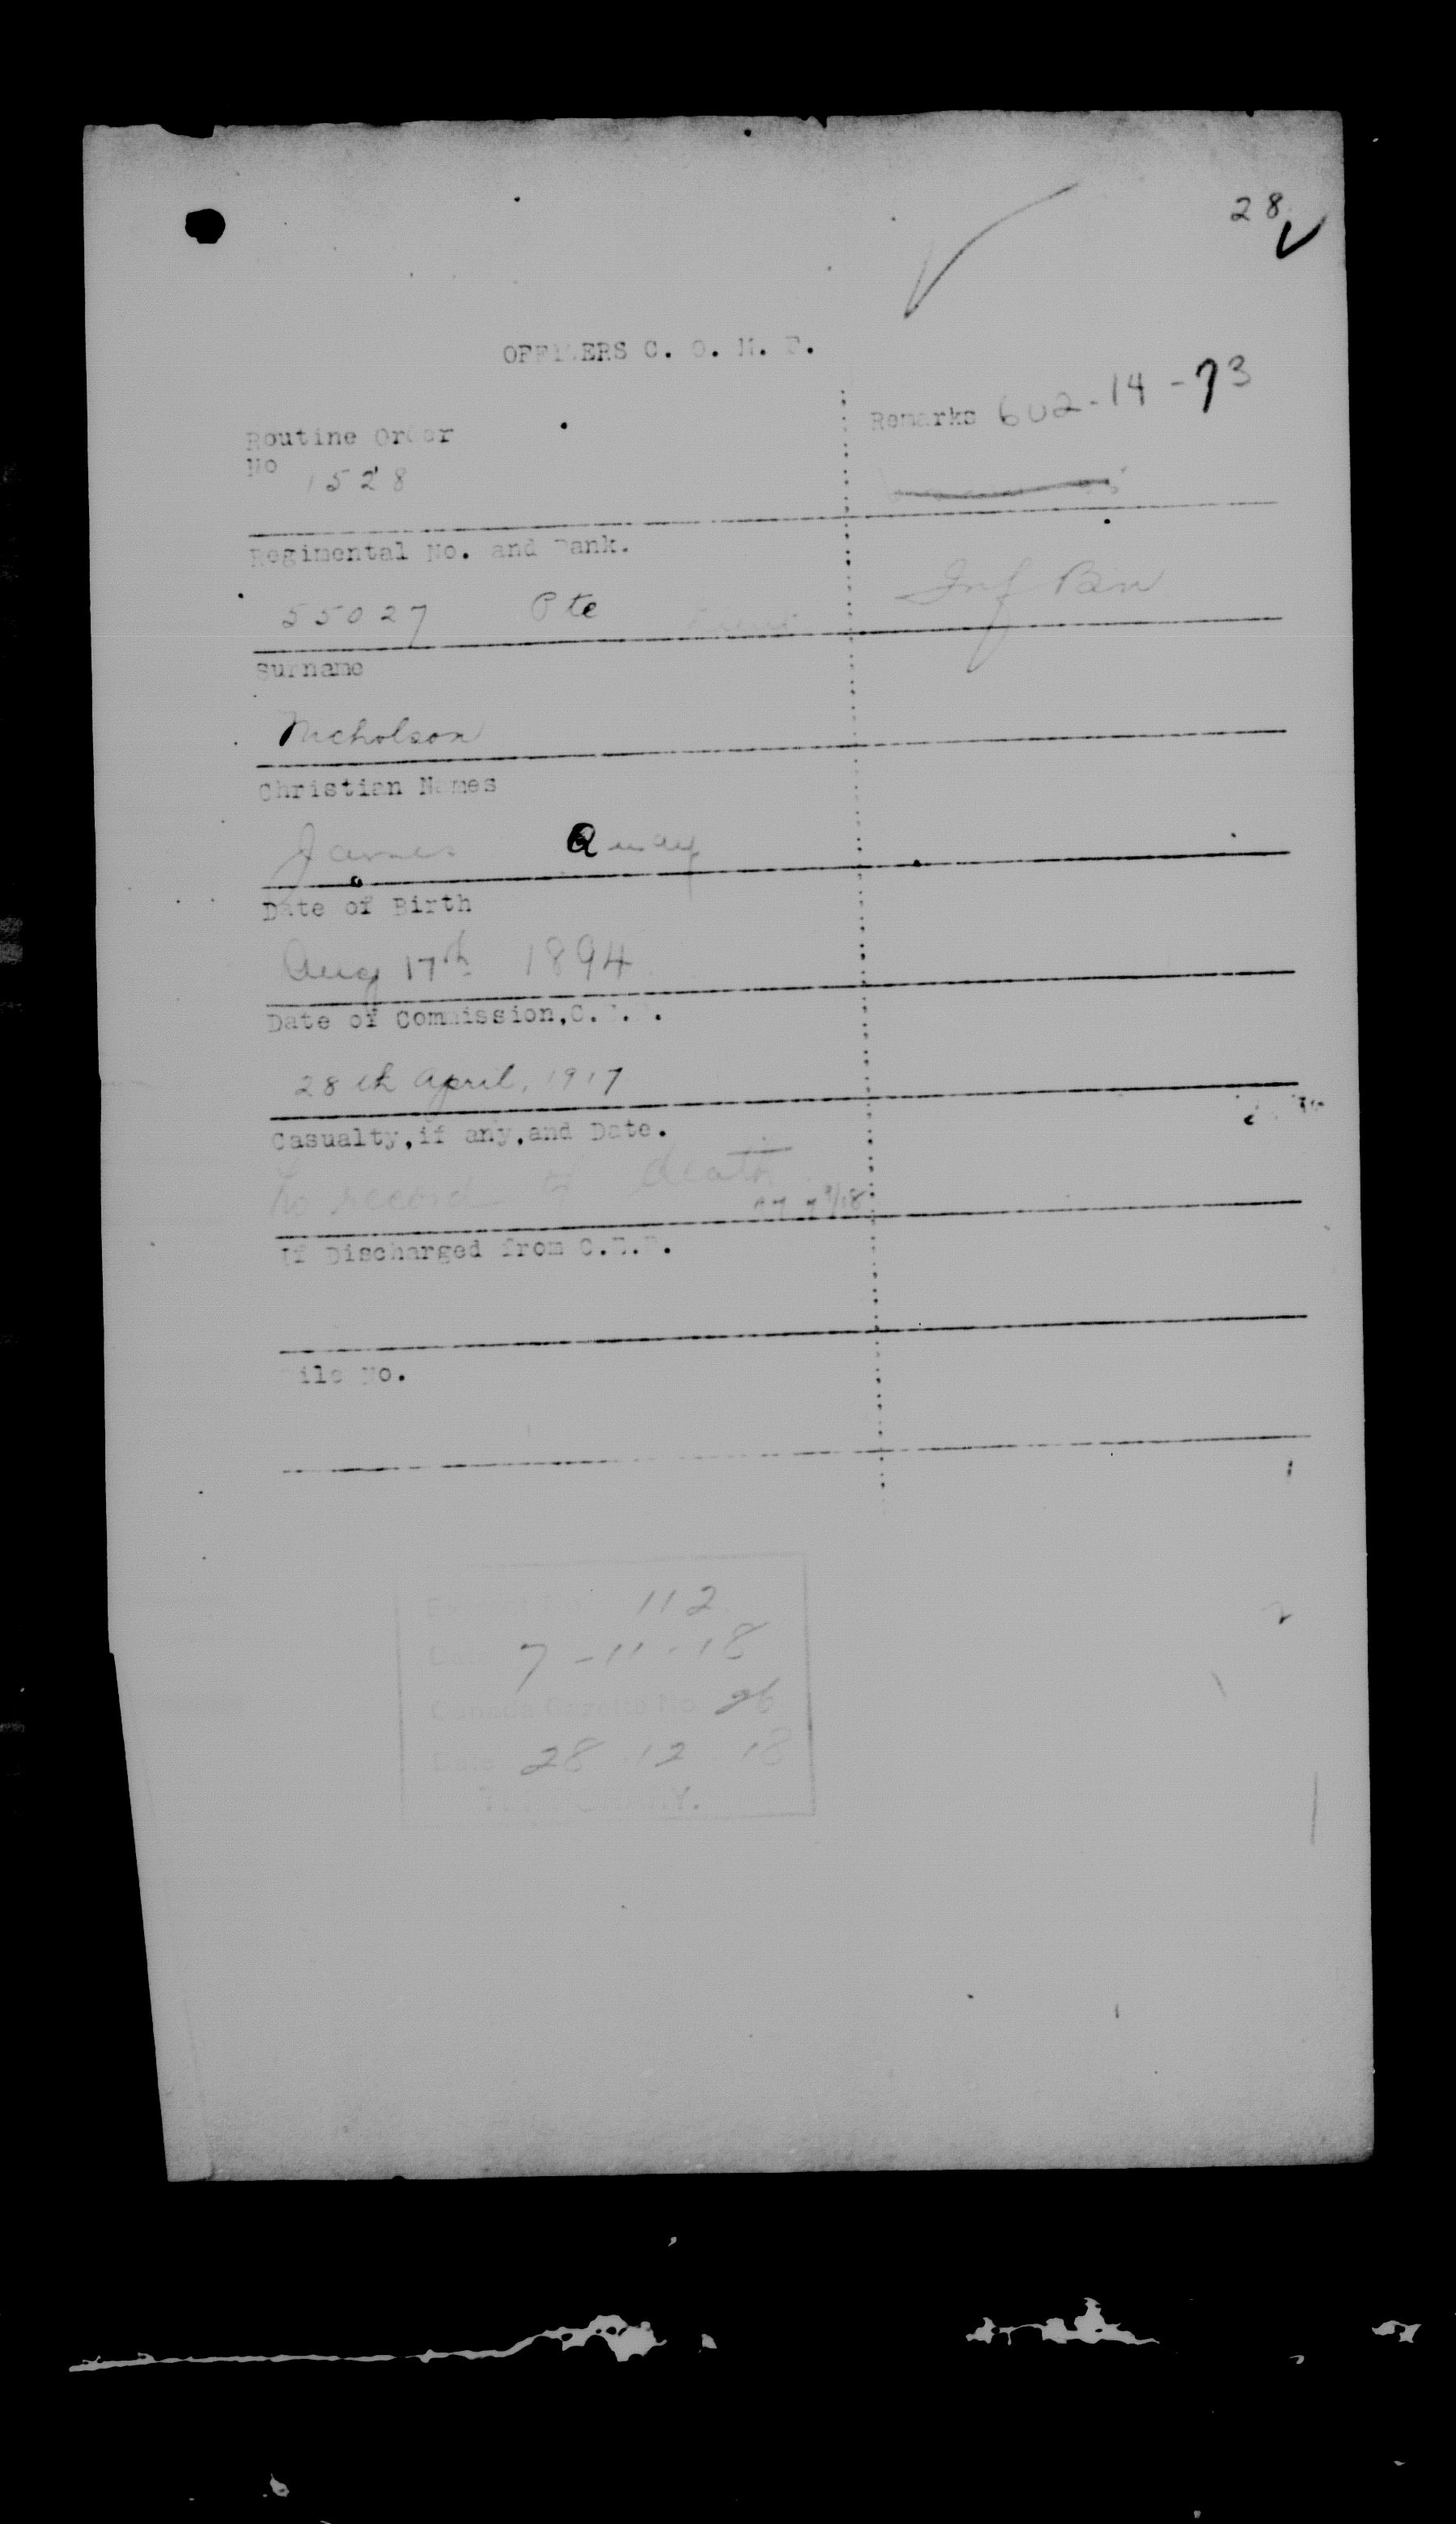 28
OFFICERS C. O. M. F.
Routine Order
No
1528
Remarks 602-14-73
Regimental No. and Rank.
55027 Pte
Inf Bn
Surname
Nicholson
Christian Names
James
Date of Birth
Aug 17th 1894
Date of Commission, C.E.F.
28th April, 1917
Casualty, if any, and Date.
No record of death
If Discharged from C.E.F.
File No.
Extract No. 112
Date 7-11-18
Canada Gazette No. 26
Date 28 12 18
TEMPORARY.